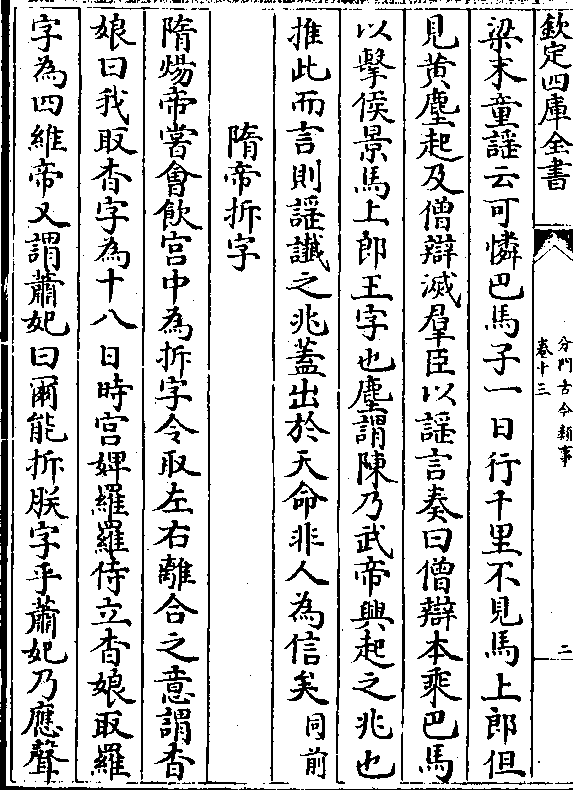 欽定四庫全書
分門古今類事
卷十三
二
梁末童謡云可憐巴馬子一日行千里不見馬上郎但
見黄塵起及僧辯滅羣臣以謡言奏曰僧辯本乘巴馬
以擊侯景馬上郎王字也塵謂陳乃武帝興起之兆也
推此而言則謡讖之兆蓋出於天命非人為信矣同前
隋帝拆字
隋煬帝嘗會飲宫中為拆字令取左右離合之意謂杳
娘曰我取杳字為十八日時宫婢羅羅侍立杳娘取羅
字為四維帝又謂蕭妃曰爾能拆朕字乎蕭妃乃應聲